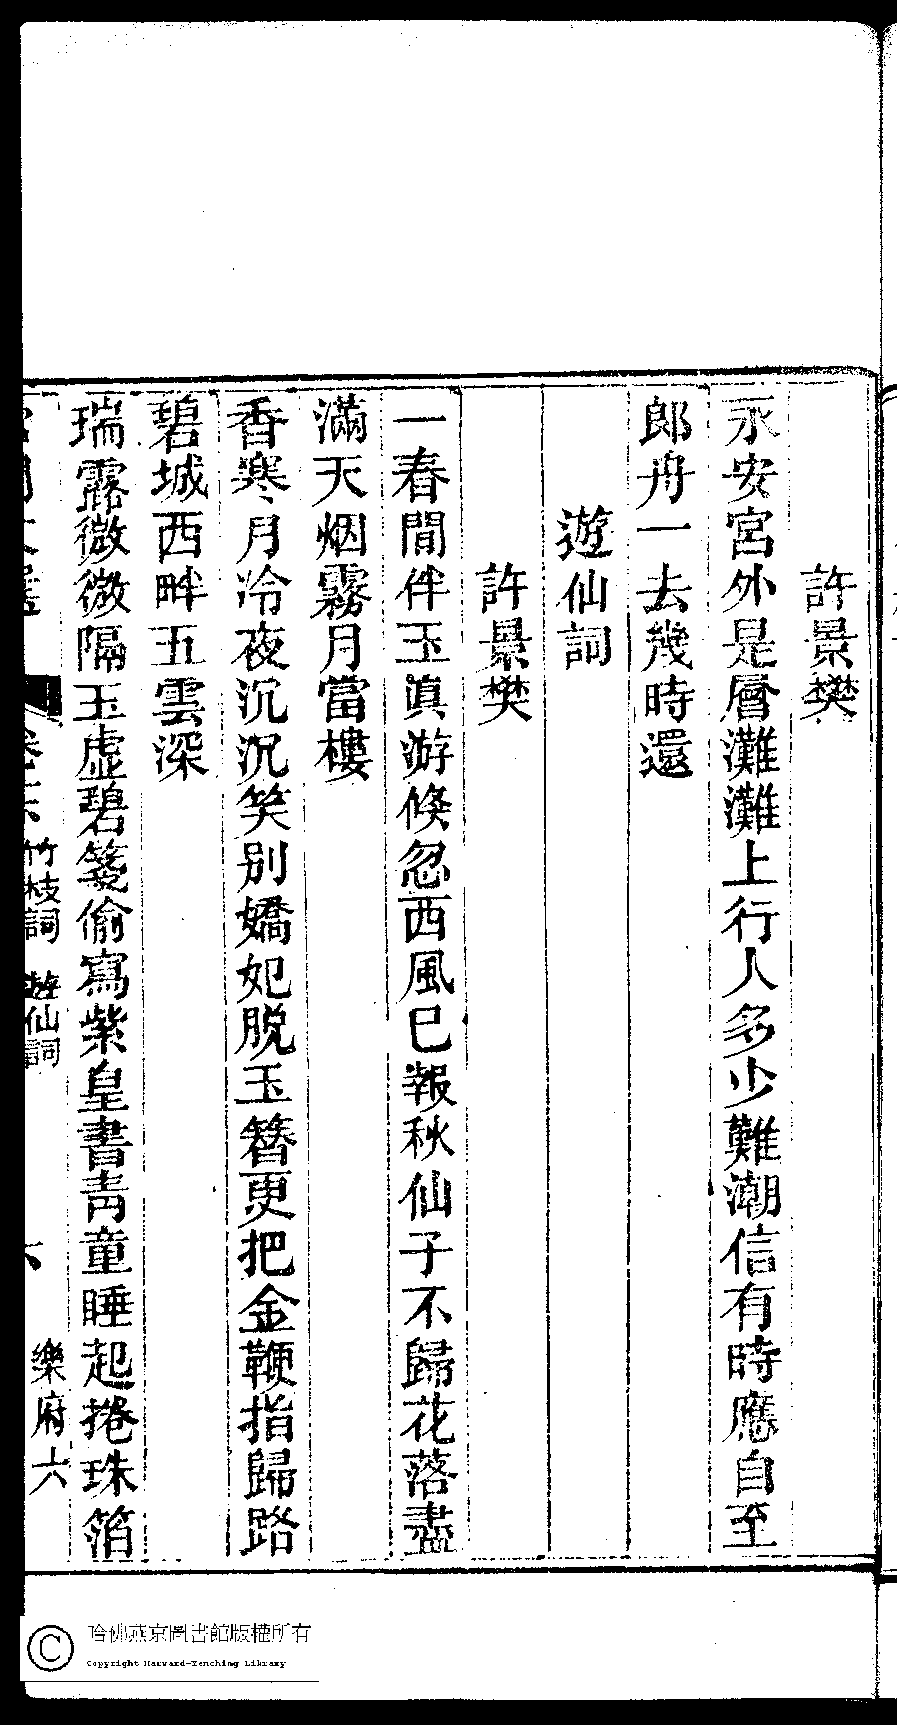 許景樊
永安宮外是層灘灘上行人多少難潮信有時應自至
郎舟一去幾時還
遊仙詞
許景樊
一春閒伴玉真游倏忽西風已報秋仙子不歸花落盡
滿天烟霧月當樓
香寒月冷夜沉沉笑別嬌妃脫玉簪更把金鞭指歸路
碧城西畔五雲深
瑞露微微隔玉虛碧箋偷寫紫皇書靑童睡起捲珠箔
卷六 竹枝詞 遊仙詞 六 樂府六
哈佛燕京圖書館版權所有
Copyright Harvard-Yenching Library